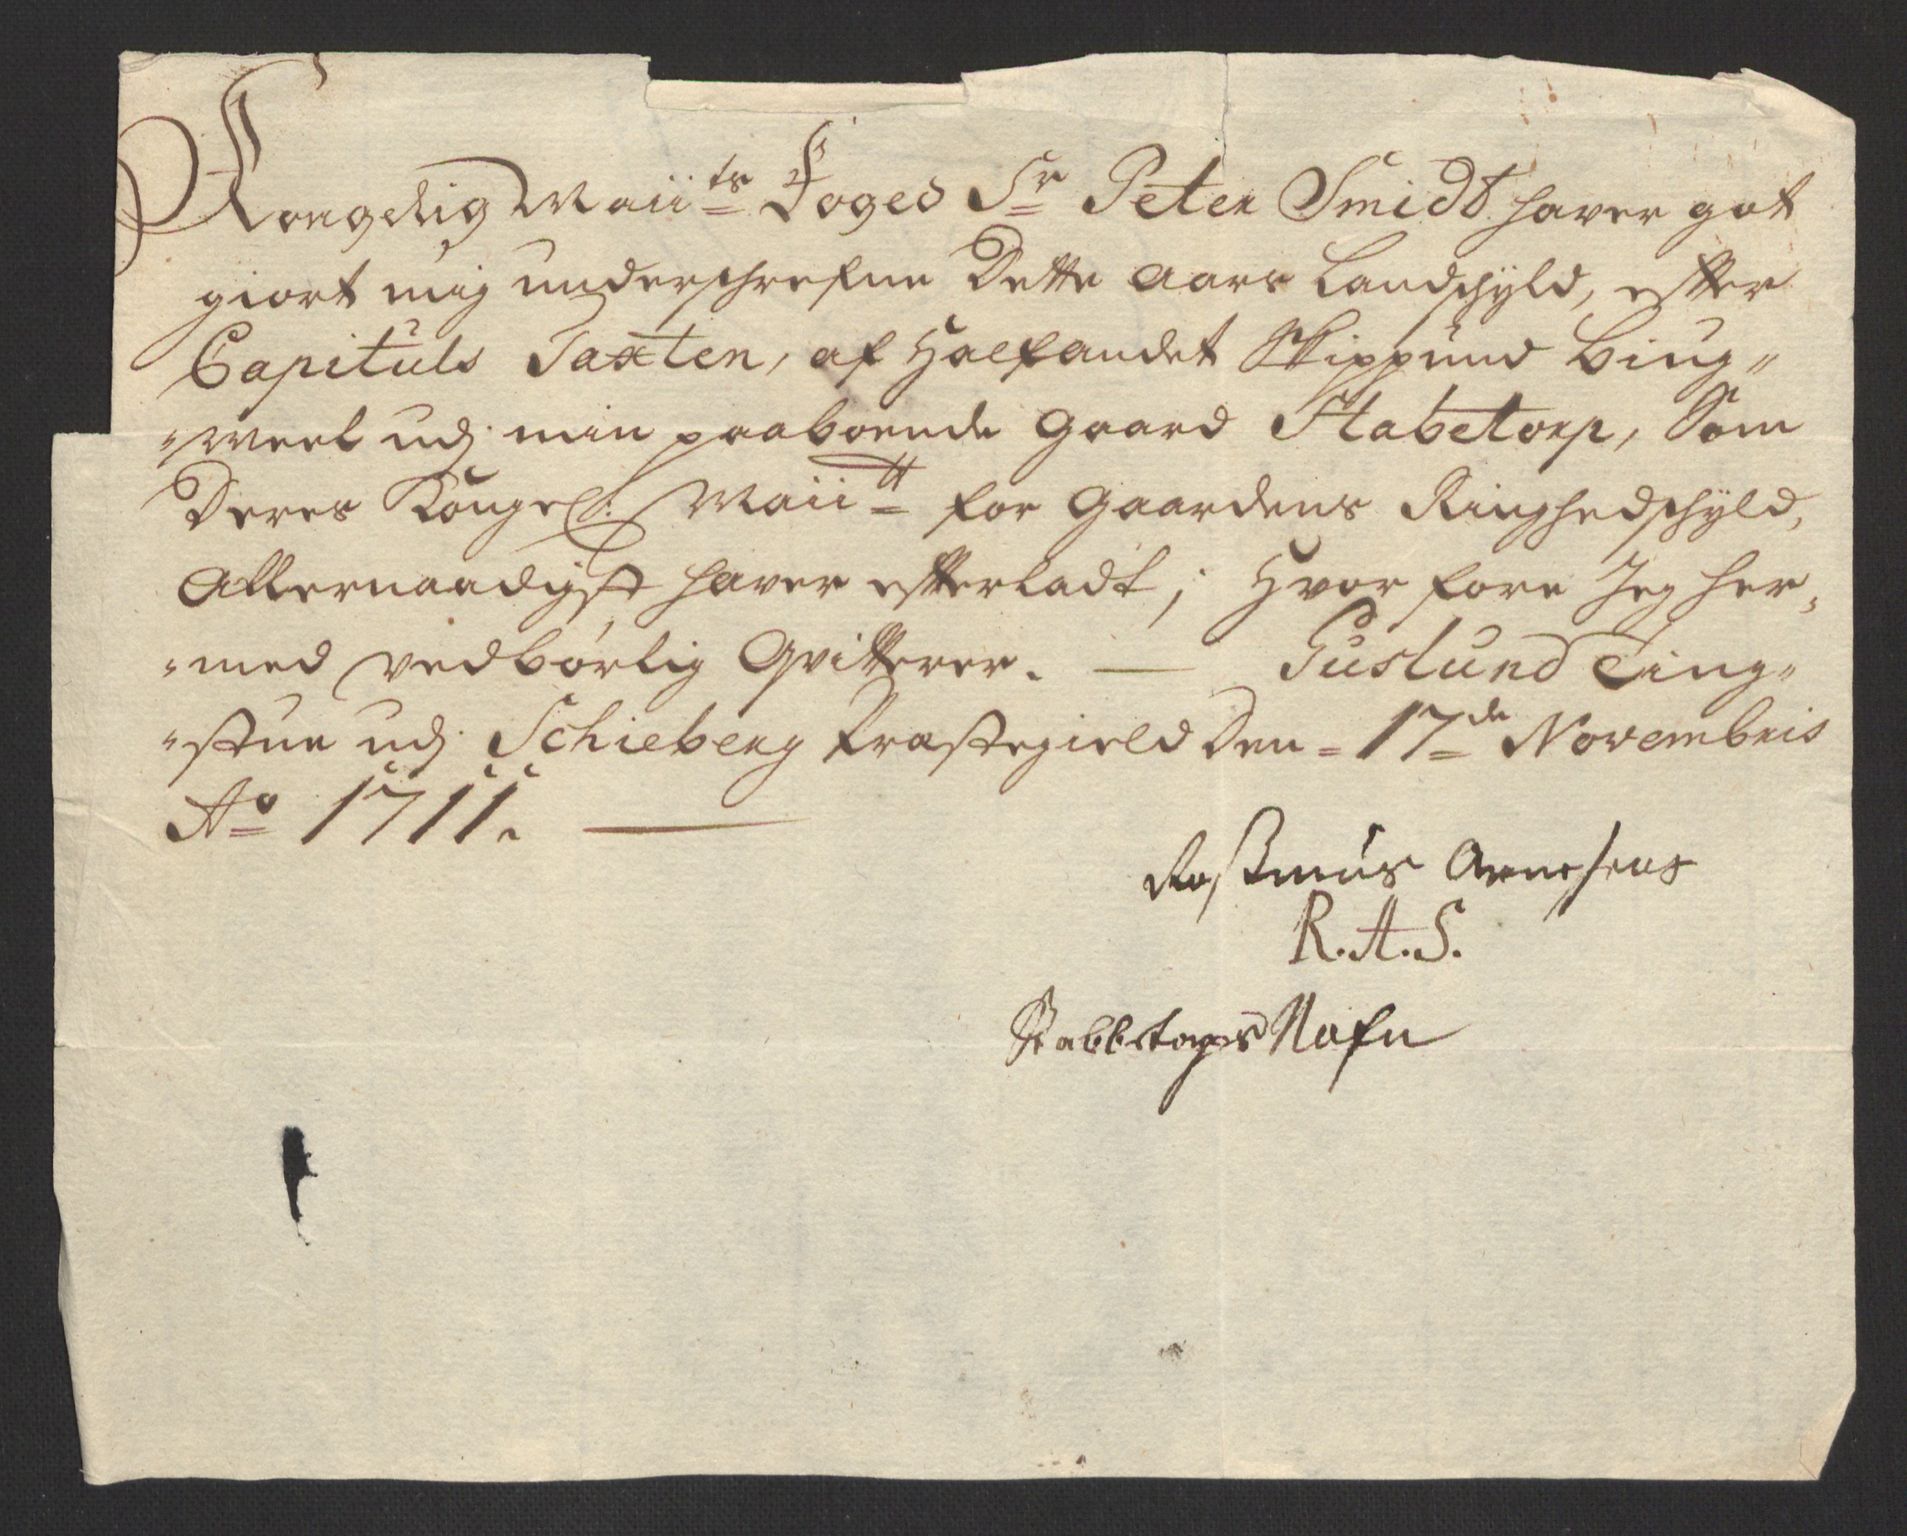 Kongelig Maiits Foged Sr Peter Smidt haver got
giort mig underschrefne Dette Aars Landschyld, efter
Capituls Taxten, af Halfandet Skippund biug¬
¬meel udj min paaboende Gaard Stabetorp, Som
Deres Kongel: Maiitt for Gaardens Ringhedschyld,
Allernaadigst haver efterladt; Hvor fore Jeg her¬
¬med vedbørlig Qvitterer. — Guslund Ting¬
¬stue udj Schieberg Præstegield Den 17de Novembris
Ao 1711. —
Rasmus Arnesens
R. A. S.
Stabbetorps Nafn